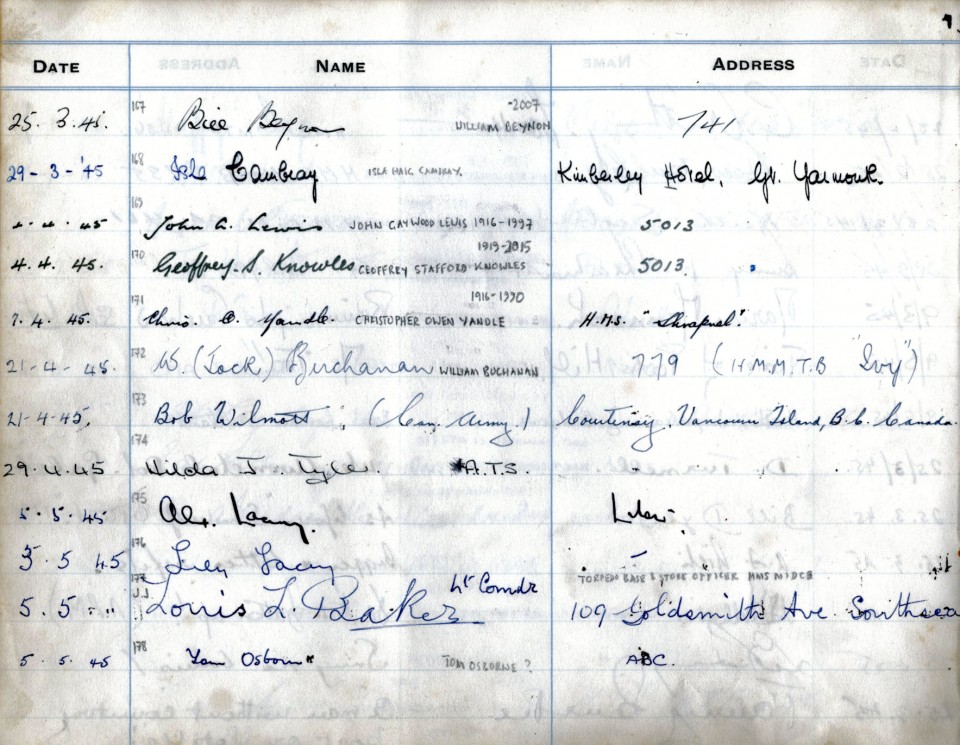 DATE NAME ADDRESS
167 -2007
25.3.45. Bill Beynon WILLIAM BEYNON 741
168
29-3-'45 Isla Cambray ISLA HAIG CAMBRAY. Kimberley Hotel, Gt. Yarmouth.
169
4.4.45 John C. Lewis JOHN CAYWOOD LEWIS 1916-1997 5013
170 1919-2015
4.4.45. Geoffrey. S. Knowles GEOFFREY STAFFORD KNOWLES 5013.
171 1916-1990
7.4.45. Chris. O. Yandle. CHRISTOPHER OWEN YANDLE H.M.S. "Shrapnel".
172
21-4-45. W. (Jock) Buchanan WILLIAM BUCHANAN 779 (H.M.M.T.B "Ivy")
173
21-4-45. Bob Wilmott, (Can. Army.) Courtenay, Vancouver Island, B.C. Canada.
174
29.4.45 Hilda J. Tyler A.T.S. -
175
5.5.45 Alex. Lacey.
176
5.5 45 Lacey -
177 TORPEDO BASE & STORE OFFICER HMS MIDGE
5.5 " Louis L. Baker Lt Comdr 109 Goldsmith Ave. Southsea
178
5.5.45 Tom Osborn TOM OSBORNE? ABC.